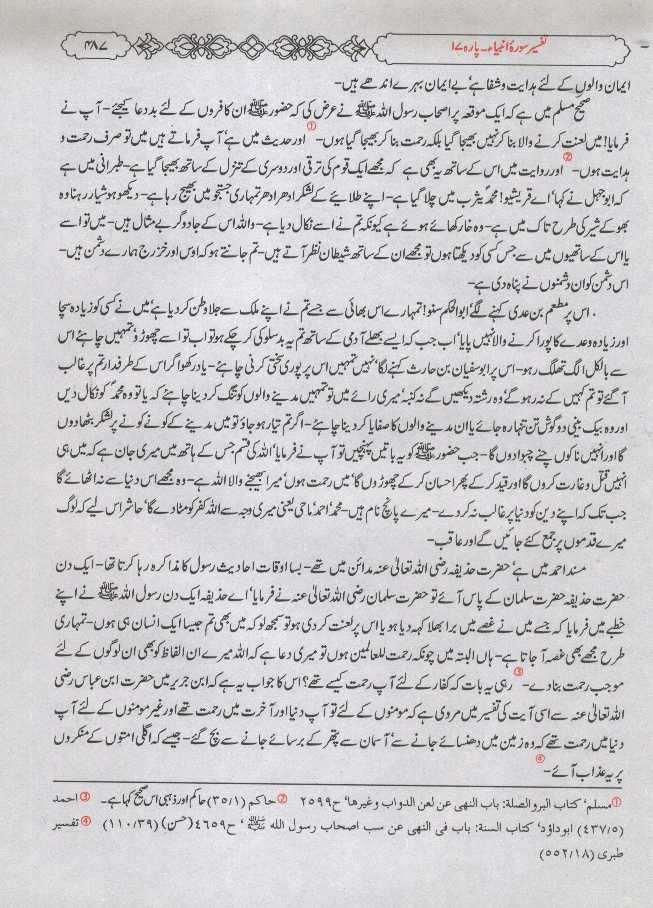 تفسیر سورۂ انبیاء۔ پارہ ۱۷
۴۸۷
ایمان والوں کے لئے ہدایت و شفا ہے‘ بے ایمان بہرے اندھے ہیں-
صحیح مسلم میں ہے کہ ایک موقعہ پر اصحاب رسول اللہ ﷺ نے عرض کی کہ حضور ﷺ ان کافروں کے لئے بددعا کیجئے- آپ نے
فرمایا! میں لعنت کرنے والا بنا کر نہیں بھیجا گیا بلکہ رحمت بنا کر بھیجا گیا ہوں-① اور حدیث میں ہے‘ آپ فرماتے ہیں میں تو صرف رحمت و
ہدایت ہوں-② اور روایت میں اس کے ساتھ یہ بھی ہے کہ مجھے ایک قوم کی ترقی اور دوسری کے تنزل کے ساتھ بھیجا گیا ہے- طبرانی میں ہے
کہ ابو جہل نے کہا‘ اے قریشیو! محمدؐ یثرب میں چلا گیا ہے- اپنے طلائیے کے لشکر ادھر ادھر تمہاری جستجو میں بھیج رہا ہے- دیکھو ہوشیار رہنا وہ
بھوکے شیر کی طرح تاک میں ہے- وہ خار کھائے ہوئے ہے کیونکہ تم نے اسے نکال دیا ہے- واللہ اس کے جادوگر بے مثال ہیں- میں تو اسے
یا اس کے ساتھیوں میں سے جس کسی کو دیکھتا ہوں تو مجھے ان کے ساتھ شیطان نظر آتے ہیں- تم جانتے ہو کہ اوس اور خزرج ہمارے دشمن ہیں-
اس دشمن کو ان دشمنوں نے پناہ دی ہے-
اس پر مطعم بن عدی کہنے لگے‘ ابو الحکم سنو! تمہارے اس بھائی سے جسے تم نے اپنے ملک سے جلاوطن کر دیا ہے‘ میں نے کسی کو زیادہ سچا
اور زیادہ وعدے کا پورا کرنے والا نہیں پایا‘ اب جب کہ ایسے بھلے آدمی کے ساتھ تم یہ بدسلوکی کر چکے ہو تو اب تو اسے چھوڑو‘ تمہیں چاہئے اس
سے بالکل الگ تھلگ رہو- اس پر ابوسفیان بن حارث کہنے لگا‘ نہیں تمہیں اس پر پوری سختی کرنی چاہئے- یاد رکھو اگر اس کے طرفدار تم پر غالب
آ گئے تو تم کہیں کے نہ رہو گے‘ وہ رشتہ دیکھیں گے نہ کنبہ‘ میری رائے میں تو تمہیں مدینے والوں کو تنگ کر دینا چاہئے کہ یا تو وہ محمدؐ کو نکال دیں
اور وہ بیک بینی دو گوش تن تنہا رہ جائے یا ان مدینے والوں کا صفایا کر دینا چاہئے- اگر تم تیار ہو جاؤ تو میں مدینے کے کونے کونے پر لشکر بٹھا دوں
گا اور انہیں ناکوں چنے چبوا دوں گا- جب حضور ﷺ کو یہ باتیں پہنچیں تو آپ نے فرمایا‘ اللہ کی قسم جس کے ہاتھ میں میری جان ہے کہ میں ہی
انہیں قتل و غارت کروں گا اور قید کر کے پھر احسان کر کے چھوڑوں گا‘ میں رحمت ہوں‘ میرا بھیجنے والا اللہ ہے- وہ مجھے اس دنیا سے نہ اٹھائے گا
جب تک کہ اپنے دین کو دنیا پر غالب نہ کر دے- میرے پانچ نام ہیں- محمدؐ‘ احمدؐ‘ ماحی یعنی میری وجہ سے اللہ کفر کو مٹا دے گا‘ حاشر اس لیے کہ لوگ
میرے قدموں پر جمع کئے جائیں گے اور عاقب-
مسند احمد میں ہے‘ حضرت حذیفہ رضی اللہ تعالیٰ عنہ مدائن میں تھے- بسا اوقات احادیث رسول کا مذاکرہ رہا کرتا تھا- ایک دن
حضرت حذیفہ حضرت سلمان کے پاس آئے تو حضرت سلمان رضی اللہ تعالیٰ عنہ نے فرمایا‘ اے حذیفہ ایک دن رسول اللہ ﷺ نے اپنے
خطبے میں فرمایا کہ جسے میں نے غصے میں برا بھلا کہہ دیا ہو یا اس پر لعنت کر دی ہو تو سمجھ لو کہ میں بھی تم جیسا ایک انسان ہی ہوں- تمہاری
طرح مجھے بھی غصہ آ جاتا ہے- ہاں البتہ میں چونکہ رحمت للعالمین ہوں تو میری دعا ہے کہ اللہ میرے ان الفاظ کو بھی ان لوگوں کے لئے
موجب رحمت بنا دے-③ رہی یہ بات کہ کفار کے لئے آپ رحمت کیسے تھے؟ اس کا جواب یہ ہے کہ ابن جریر میں حضرت ابن عباس رضی
اللہ تعالیٰ عنہ سے اسی آیت کی تفسیر میں مروی ہے کہ مومنوں کے لئے تو آپ دنیا اور آخرت میں رحمت تھے اور غیر مومنوں کے لئے آپ
دنیا میں رحمت تھے کہ وہ زمین میں دھنسائے جانے سے‘ آسمان سے پتھر کے برسائے جانے سے بچ گئے- جیسے کہ اگلی امتوں کے منکروں
پر یہ عذاب آئے-④
①مسلم‘ کتاب البر والصلة: باب النهی عن لعن الدواب وغیرها‘ ح۲۵۹۹ ②حاکم (۳۵/۱) حاکم اور ذہبی اس صحیح کہا ہے- ③ احمد
(۴۳۷/۵) ابوداؤد‘ کتاب السنة: باب فی النهی عن سب اصحاب رسول الله ﷺ‘ ح۴۶۵۹ (حسن) (۱۱۰/۳۹) ④ تفسیر
طبری (۵۵۲/۱۸)